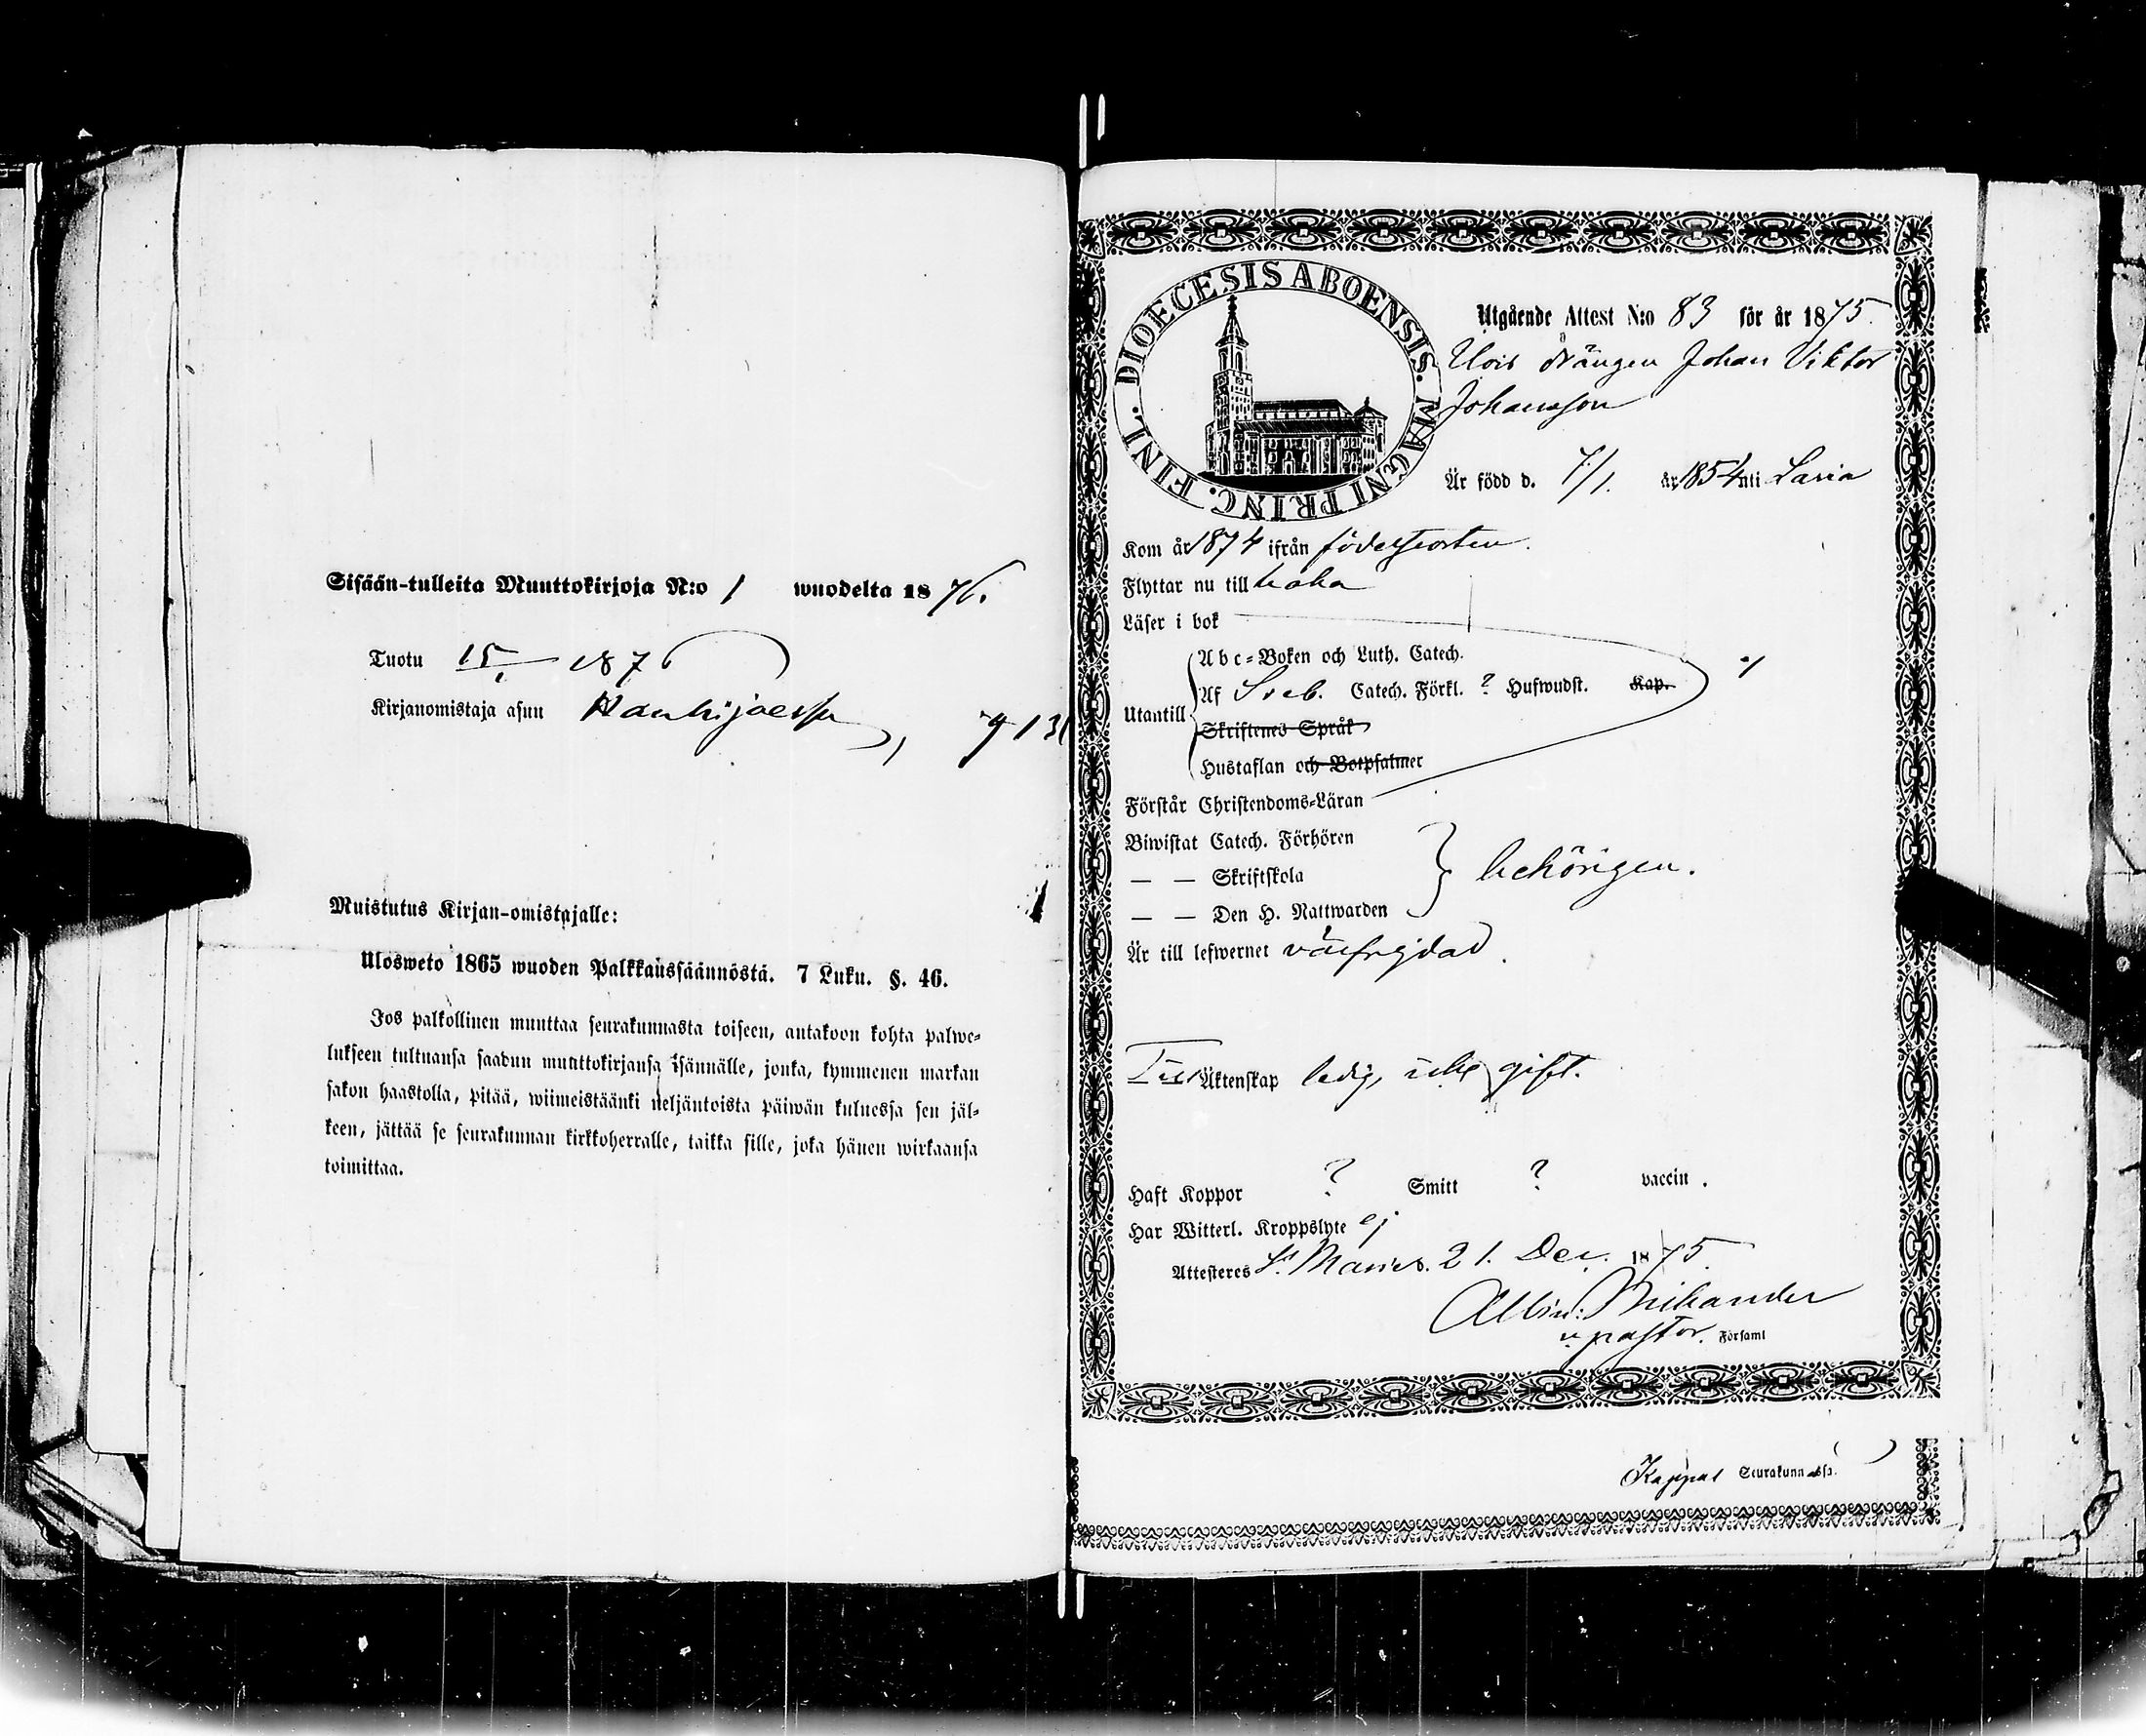 Sisään-tulleita Muuttokirjoja N:o 1 wuodelta 1876.
Tuotu 15/1 1876
Kirjanomistaja asuu
Muistutus Kirjan-omistajalle:
Ulosweto 1865 wuoden Palkkaussäännöstä. 7 Luku. §. 46.
Jos palkollinen muuttaa seurakunnasta toiseen, antakoon kohta palwe-
lukseen tultuansa saadun muuttokirjansa isännälle, jonka, kymmenen markan
sakon haastolla, pitää, wiimeistäänki neljäntoista päiwän kuluessa sen jäl-
keen, jättää se seurakunnan kirkkoherralle, taikka sille, joka hänen wirkaansa
toimittaa.
DIOECESIS ABOENSIS. MAGNI PRINC. FINL.
Utgående Attest N:o 83 för år 1875.
drängen Johan Viktor
Johansson
Är född d. 7/1. år 1854 uti
Kom år 1874 ifrån födelseorten.
Flyttar nu till
Läser i bok
Abc-Boken och Luth. Catech.
Utantill
Af Sveb. Catech. Förkl. ? Hufwudst. Kap.
Skriftenes Språk
Hustaflan och Botpsalmer
Förstår Christendoms-Läran
Biwistat Catech. Förhören
— — Skriftskola behörigen.
— — Den H. Nattwarden
Är till lefwernet väfrejdad.
Till Äktenskap ledig, icke gift.
Haft Koppor ? Smitt ? vaccin.
Har Witterl. Kroppslyte ej
Attesteras St Maries. 21. Dec. 1875
Albin: Mikander
v pastor. Församl
Seurakunnassa.